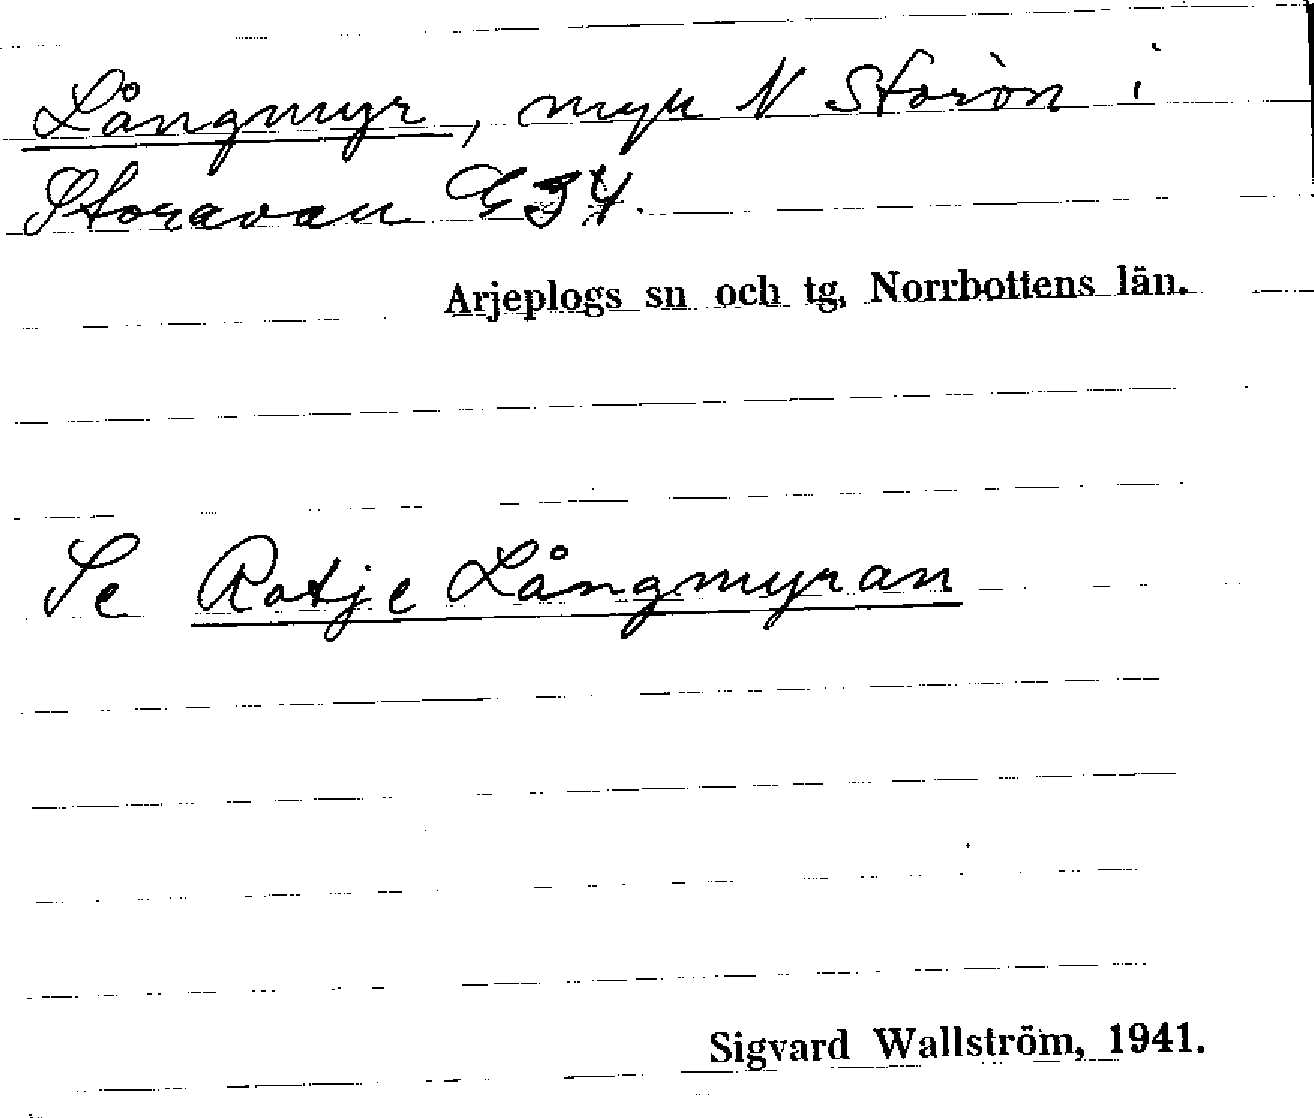 Långmyr, myr N Storön i
Storavan G34.
Arjeplogs sn och tg, Norrbottens län.
Se Rotje Långmyran
Sigvard Wallström, 1941.